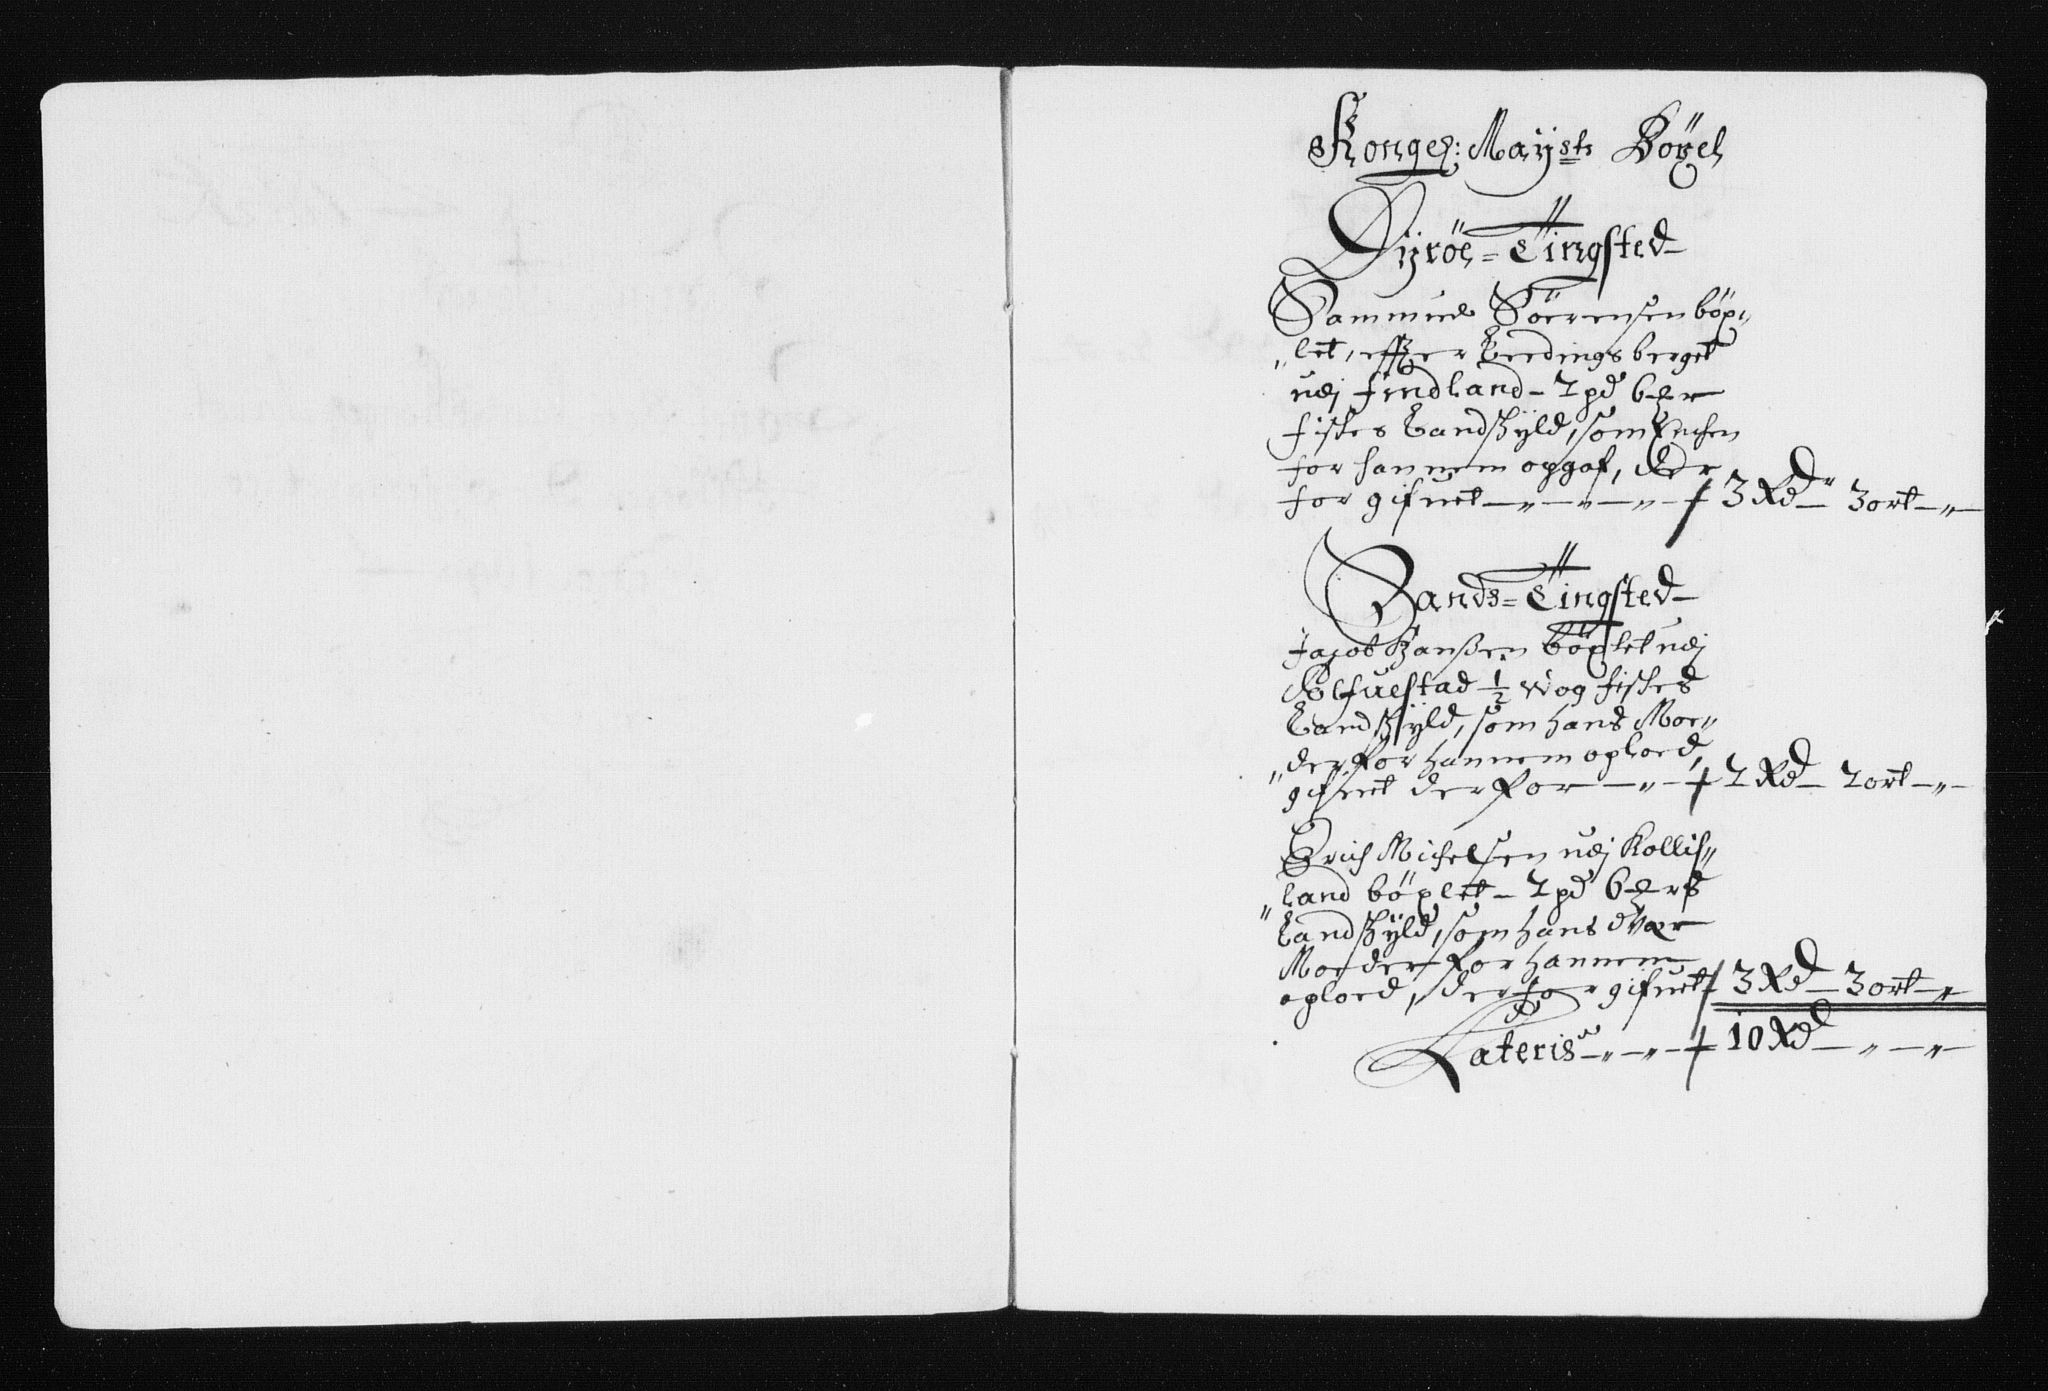 Kongel: Mayst: Böxel
Dyröe = Tingsted
Sammuel Söerensen böx„
„let, effter Leedings berget
udj findland - 2 pd 6 
fiskes Landskyld, som Enchen
for hannem opgaf, der
for gifuet — 3 Rd 3 ort — „ —
Sands = Tingsted
Jacob Hanßen böxlet udj
Rolfuestad ½ wog fiskes
Landskyld, som hans Moe„
„der for hannem oploed,
gifuet der for — 2 Rd — 2 ort — „ —
Erich Michelsen udj Kollis„
„land böxlet - 2 pd 6 
Landskyld, som hans
Moeder for hannem
oploed, der for gifuet 3 Rd — 3 ort — „
Lateris — „ — „ — 10 Rd — „ — „ —